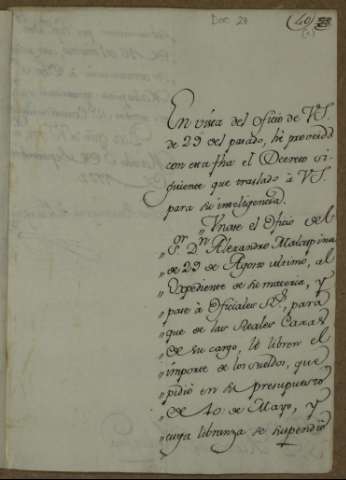 Doc. 28
(40)
En vista del Oficio de V.S.
de 29 del pasado, hé proveido
con esta fha el Decreto si-
guiente que traslado à V.S.
para su inteligencia.
„Unase el Oficio del
„Sor. Dn. Alexandro Malaspina
„de 29 de Agosto ultimo, al
„Expediente de su materia, y
„pase à Oficiales Rs., para
„que de las Reales Caxas
„de su cargo, le libren el
„importe de los sueldos, que
„pidió en su presupuesto
„de 10 de Mayo, y
„cuya libranza se suspendió